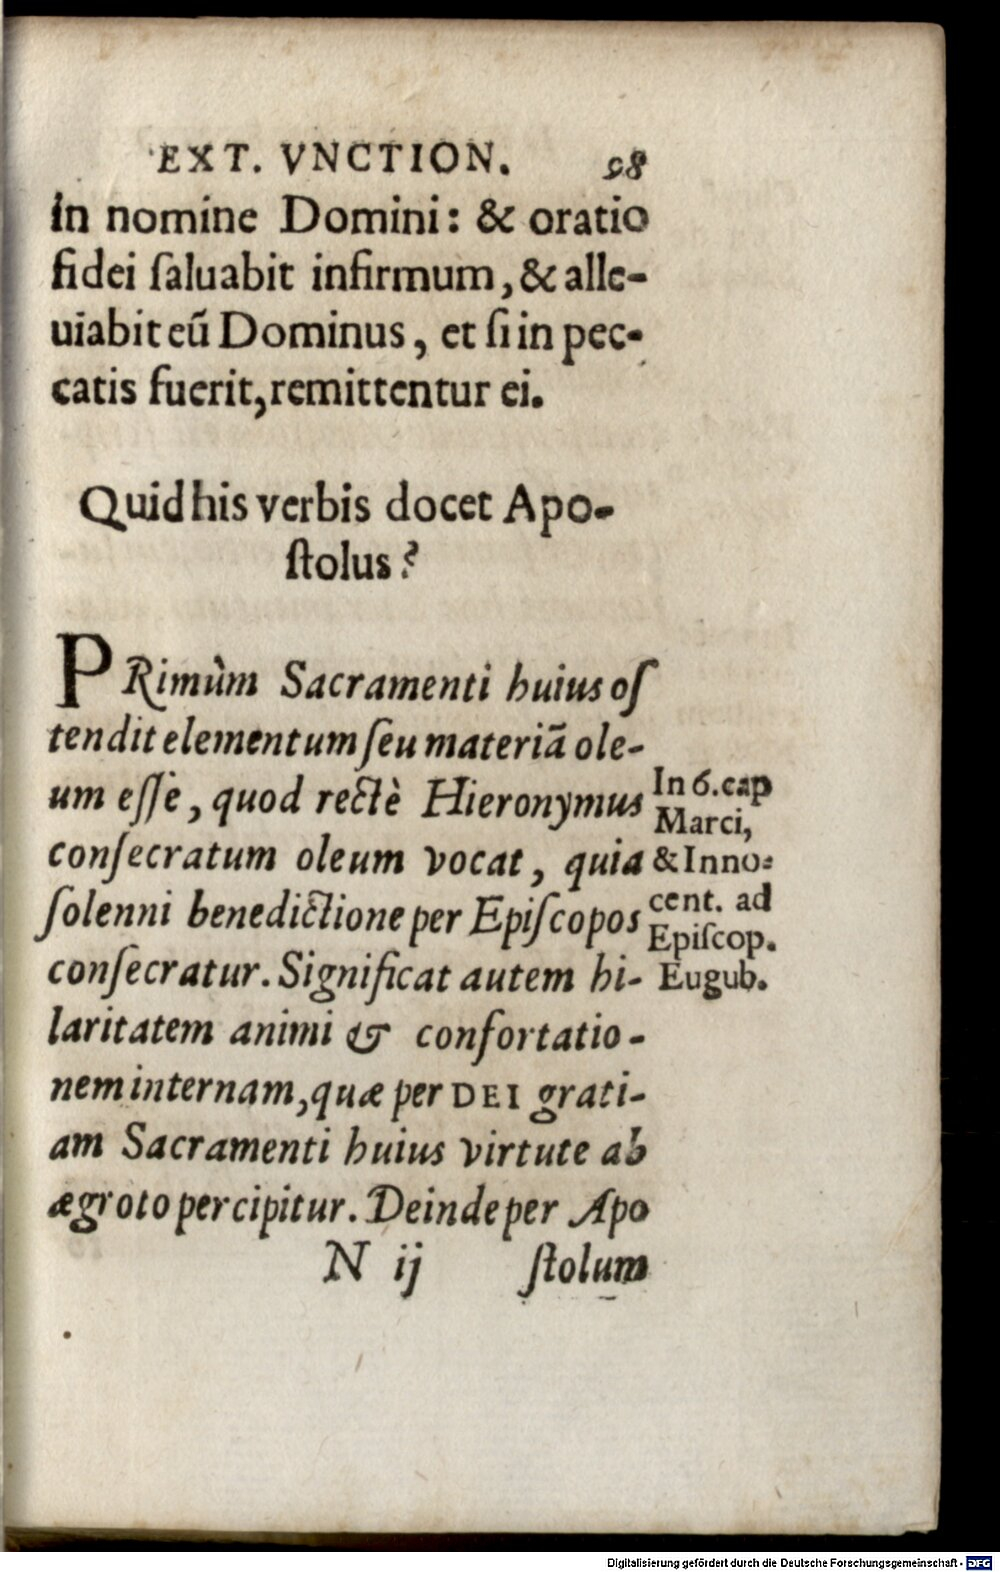 EXT. VNCTION. 98
in nomine Domini: & oratio
fidei ſaluabit infirmum, & alle-
uiabit eũ Dominus, et ſi in pec-
catis fuerit, remittentur ei.
Quid his verbis docet Apo-
ſtolus?
PRimùm Sacramenti huius oſ
tendit elementum ſeu materiã ole-
um eſſe, quod rectè Hieronymus
conſecratum oleum vocat, quia
ſolenni benedictione per Epiſcopos
conſecratur. Significat autem hi-
laritatem animi & confortatio-
nem internam, quæ per DEI grati-
am Sacramenti huius virtute ab
ægroto percipitur. Deinde per Apo
In 6. cap
Marci,
& Inno-
cent. ad
Epiſcop.
Eugub.
N ij ſtolum
Digitalisierung gefördert durch die Deutsche Forschungsgemeinschaft - DFG